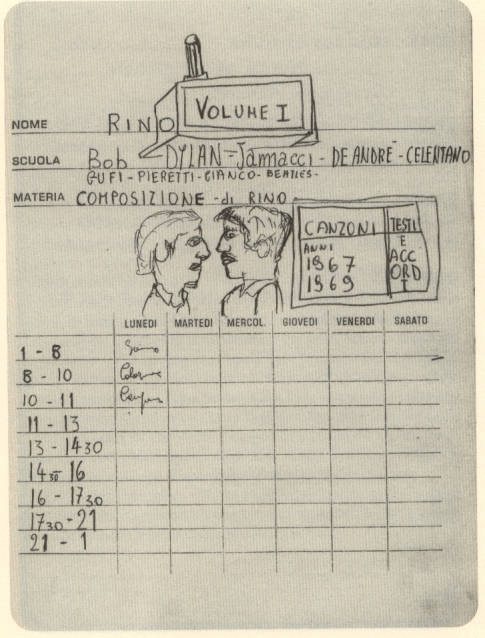 VOLUME I
NOME RINO
SCUOLA Bob - DYLAN - Jannacci - DE ANDRÉ - CELENTANO
GUFI - PIERETTI - CIANCO - BEATLES -
MATERIA COMPOSIZIONE - di RINO -
CANZONI TESTI
ANNI E
1967 ACC
1969 ORD
I
LUNEDI MARTEDI MERCOL. GIOVEDI VENERDI SABATO
1 - 8 Sonno
8 - 10
10 - 11
11 - 13
13 - 1430
1430 - 16
16 - 1730
1730 - 21
21 - 1